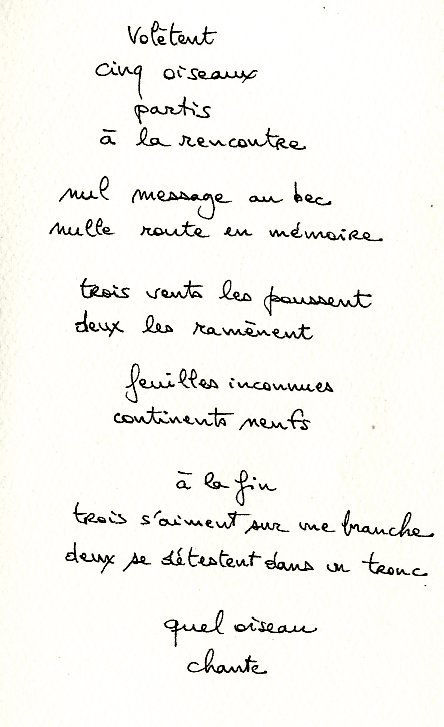 Volètent
cinq oiseaux
partis
à la rencontre
nul message au bec
nulle route en mémoire
trois vents les poussent
deux les ramènent
feuilles inconnues
continents neufs
à la fin
trois s'aiment sur une branche
deux se détestent dans un tronc
quel oiseau
chante